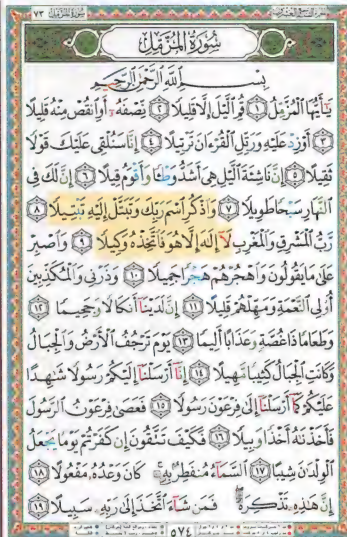 سُورَةُ المُزَّمِّلِ
بِسْمِ اللَّهِ الرَّحْمَٰنِ الرَّحِيمِ
يَا أَيُّهَا الْمُزَّمِّلُ ١ قُمِ الَّيْلَ إِلَّا قَلِيلًا ٢ نِّصْفَهُ أَوِ انقُصْ مِنْهُ قَلِيلًا
٣ أَوْ زِدْ عَلَيْهِ وَرَتِّلِ الْقُرْءَانَ تَرْتِيلًا ٤ إِنَّا سَنُلْقِي عَلَيْكَ قَوْلًا
ثَقِيلًا ٥ إِنَّ نَاشِئَةَ الَّيْلِ هِيَ أَشَدُّ وَطْئًا وَأَقْوَمُ قِيلًا ٦ إِنَّ لَكَ فِي
النَّهَارِ سَبْحًا طَوِيلًا ٧ وَاذْكُرِ اسْمَ رَبِّكَ وَتَبَتَّلْ إِلَيْهِ تَبْتِيلًا ٨
رَّبُّ الْمَشْرِقِ وَالْمَغْرِبِ لَا إِلَٰهَ إِلَّا هُوَ فَاتَّخِذْهُ وَكِيلًا ٩ وَاصْبِرْ
عَلَىٰ مَا يَقُولُونَ وَاهْجُرْهُمْ هَجْرًا جَمِيلًا ١٠ وَذَرْنِي وَالْمُكَذِّبِينَ
أُولِي النَّعْمَةِ وَمَهِّلْهُمْ قَلِيلًا ١١ إِنَّ لَدَيْنَا أَنكَالًا وَجَحِيمًا ١٢
وَطَعَامًا ذَا غُصَّةٍ وَعَذَابًا أَلِيمًا ١٣ يَوْمَ تَرْجُفُ الْأَرْضُ وَالْجِبَالُ
وَكَانَتِ الْجِبَالُ كَثِيبًا مَّهِيلًا ١٤ إِنَّا أَرْسَلْنَا إِلَيْكُمْ رَسُولًا شَٰهِدًا
عَلَيْكُمْ كَمَا أَرْسَلْنَا إِلَىٰ فِرْعَوْنَ رَسُولًا ١٥ فَعَصَىٰ فِرْعَوْنُ الرَّسُولَ
فَأَخَذْنَٰهُ أَخْذًا وَبِيلًا ١٦ فَكَيْفَ تَتَّقُونَ إِن كَفَرْتُمْ يَوْمًا يَجْعَلُ
الْوِلْدَٰنَ شِيبًا ١٧ السَّمَاءُ مُنفَطِرٌ بِهِ كَانَ وَعْدُهُ مَفْعُولًا ١٨
إِنَّ هَٰذِهِ تَذْكِرَةٌ فَمَن شَاءَ اتَّخَذَ إِلَىٰ رَبِّهِ سَبِيلًا ١٩
٥٧٤